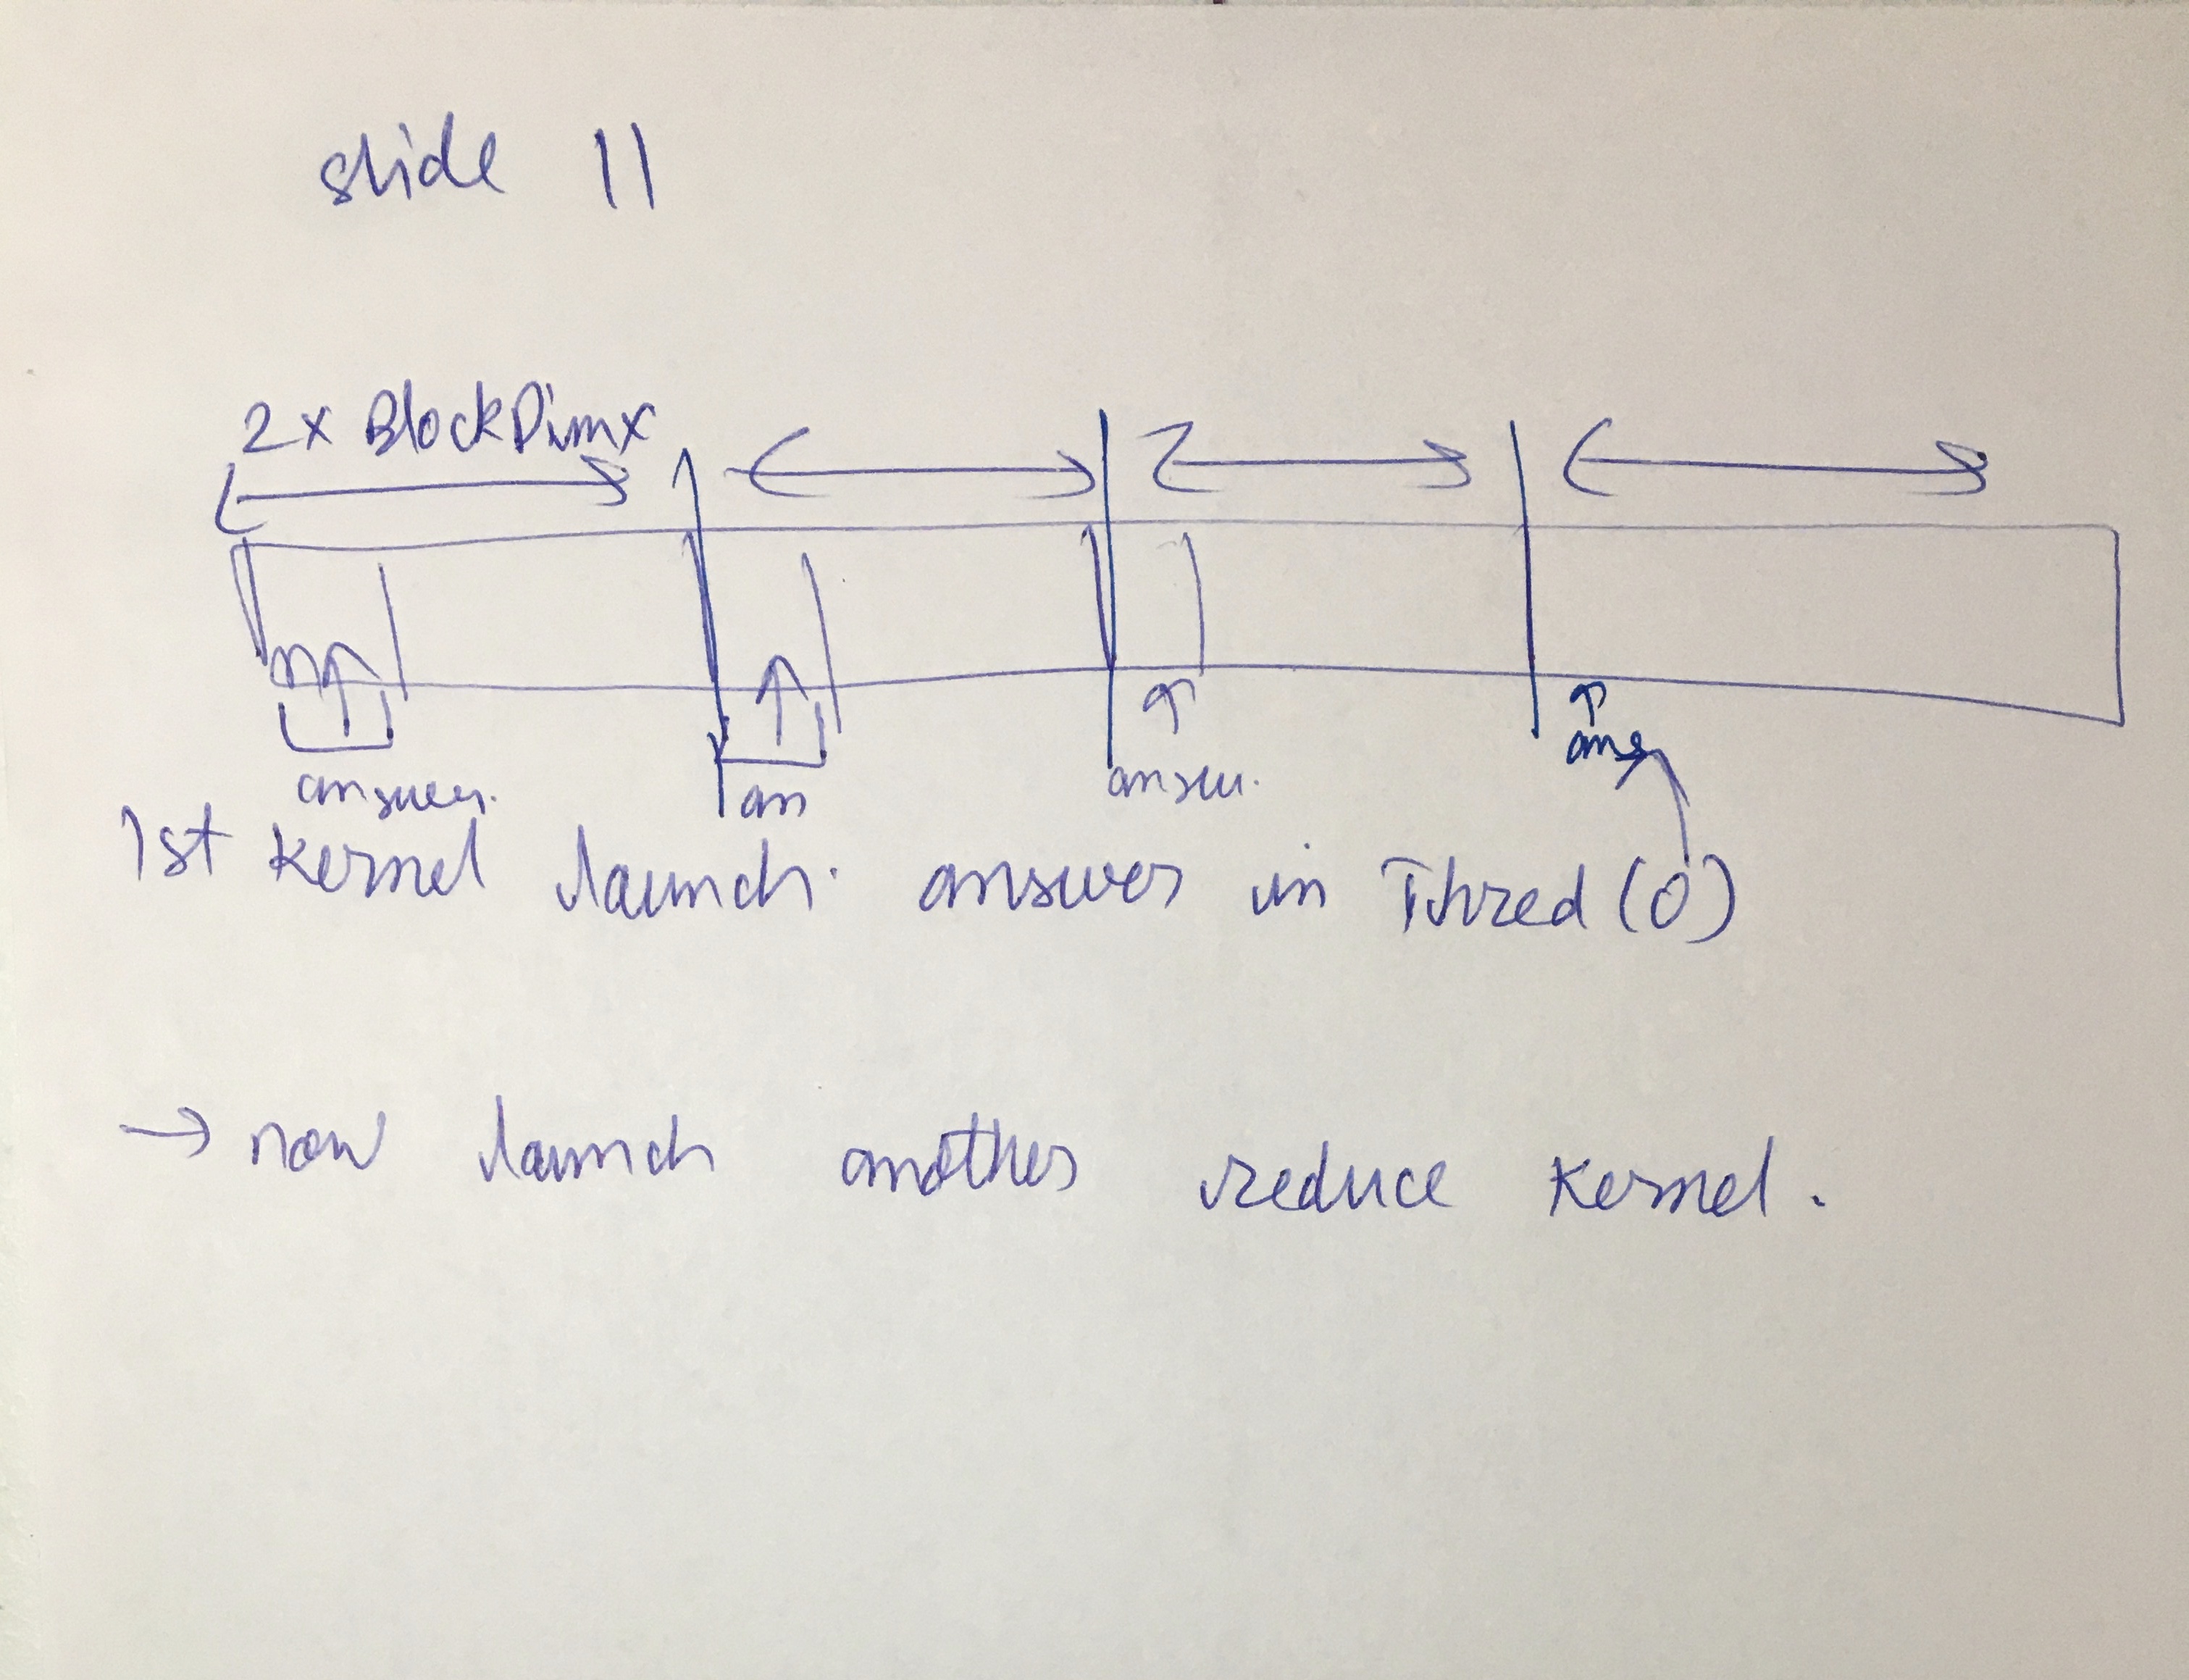 slide 11
2x BlockDimx
answer.
an
answer.
ans
1st kernel launch. answer in Thred (0)
→ now launch another reduce kernel.